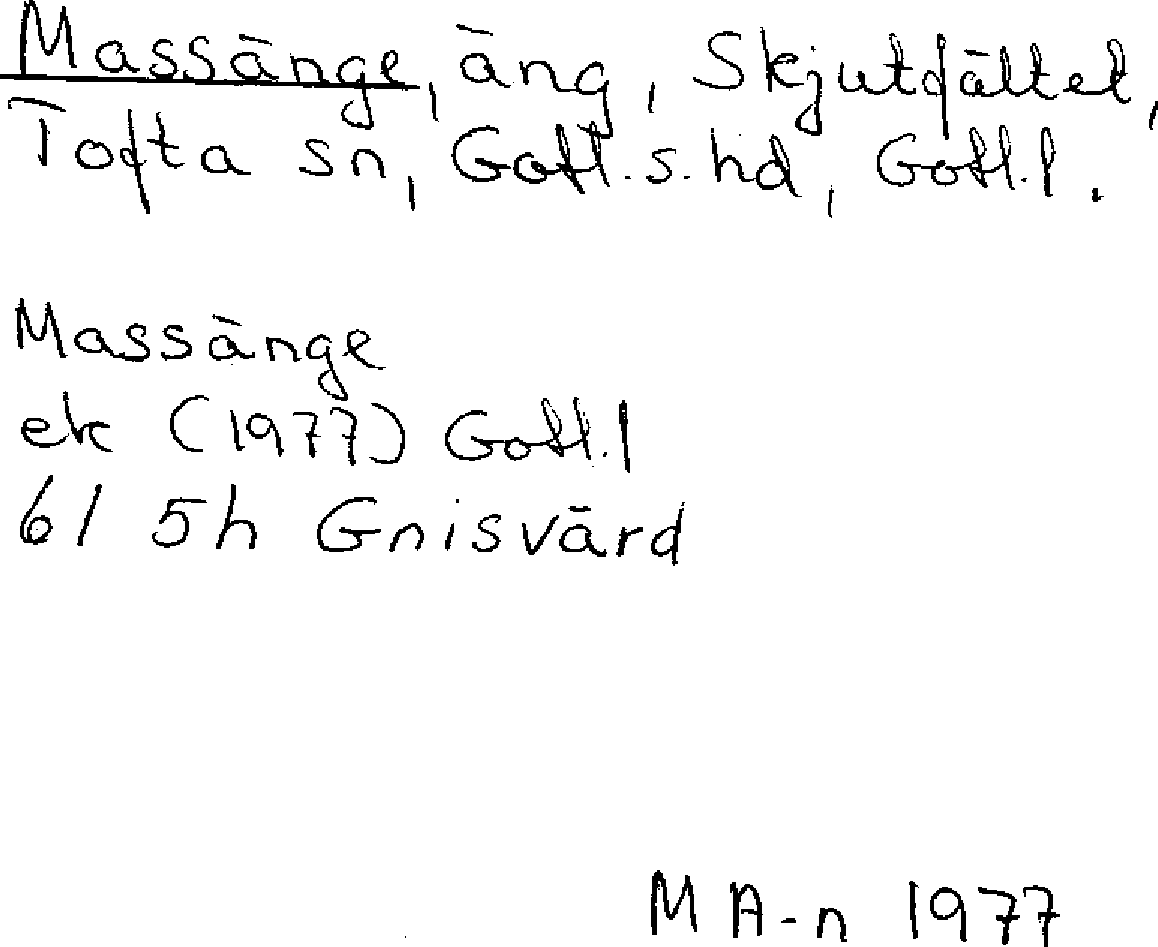 Massänge, äng, Skjutfältet,
Tofta sn, Gotl.s.hd, Gotl.l.
Massänge
ek (1977) Gotl.l
6I 5h Gnisvärd
MA-n 1977